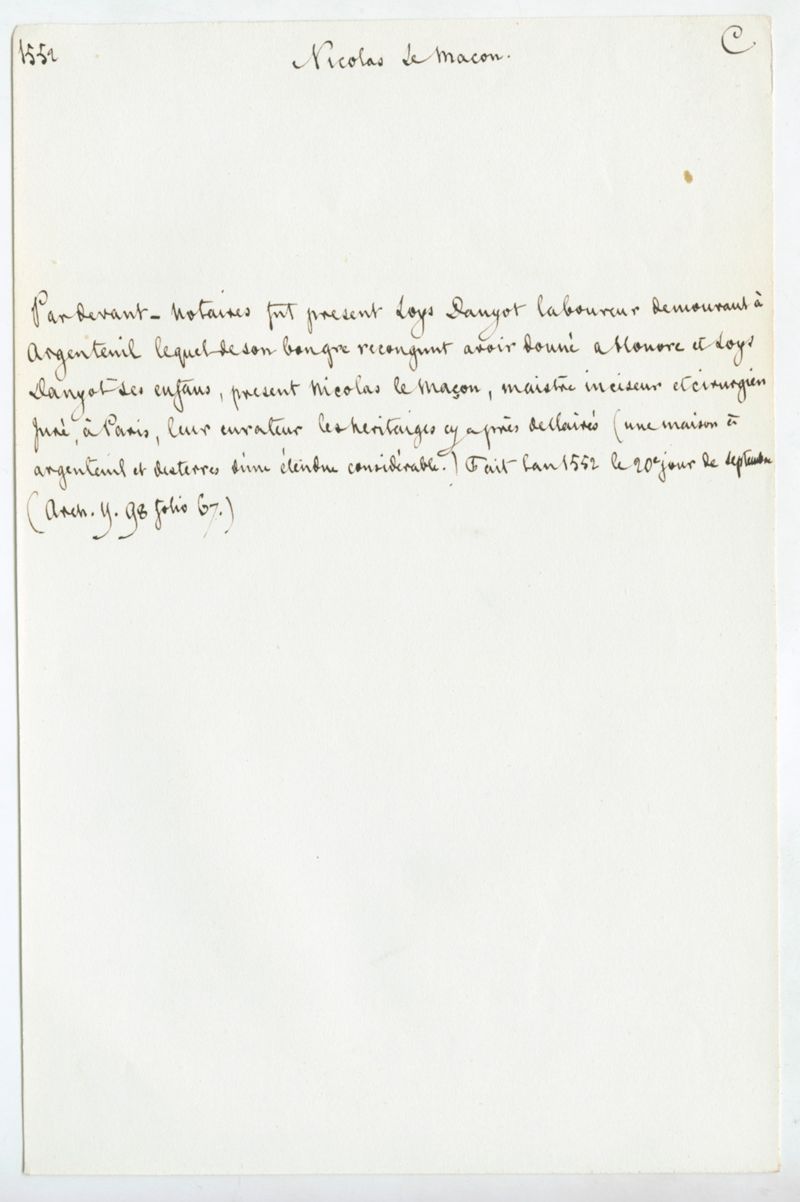 1552
Nicolas Le Macon.
C.
Par devant - Notaires fut present Loys Danyot laboureur demourant à
Argenteuil lequel de son bon gre recongnut avoir donné a Honore et Loys
Danyot ses enfans, present Nicolas le Maçon, maistre inciseur et cirurgien
Juré, à Paris, leur curateur les heritaiges cy après desclairés (une maison à
argenteuil et des terres d'une étendue considérable.) Fait l'an 1552 le 20e jour de septembre
(Arch. Y. 98 folio 67.)